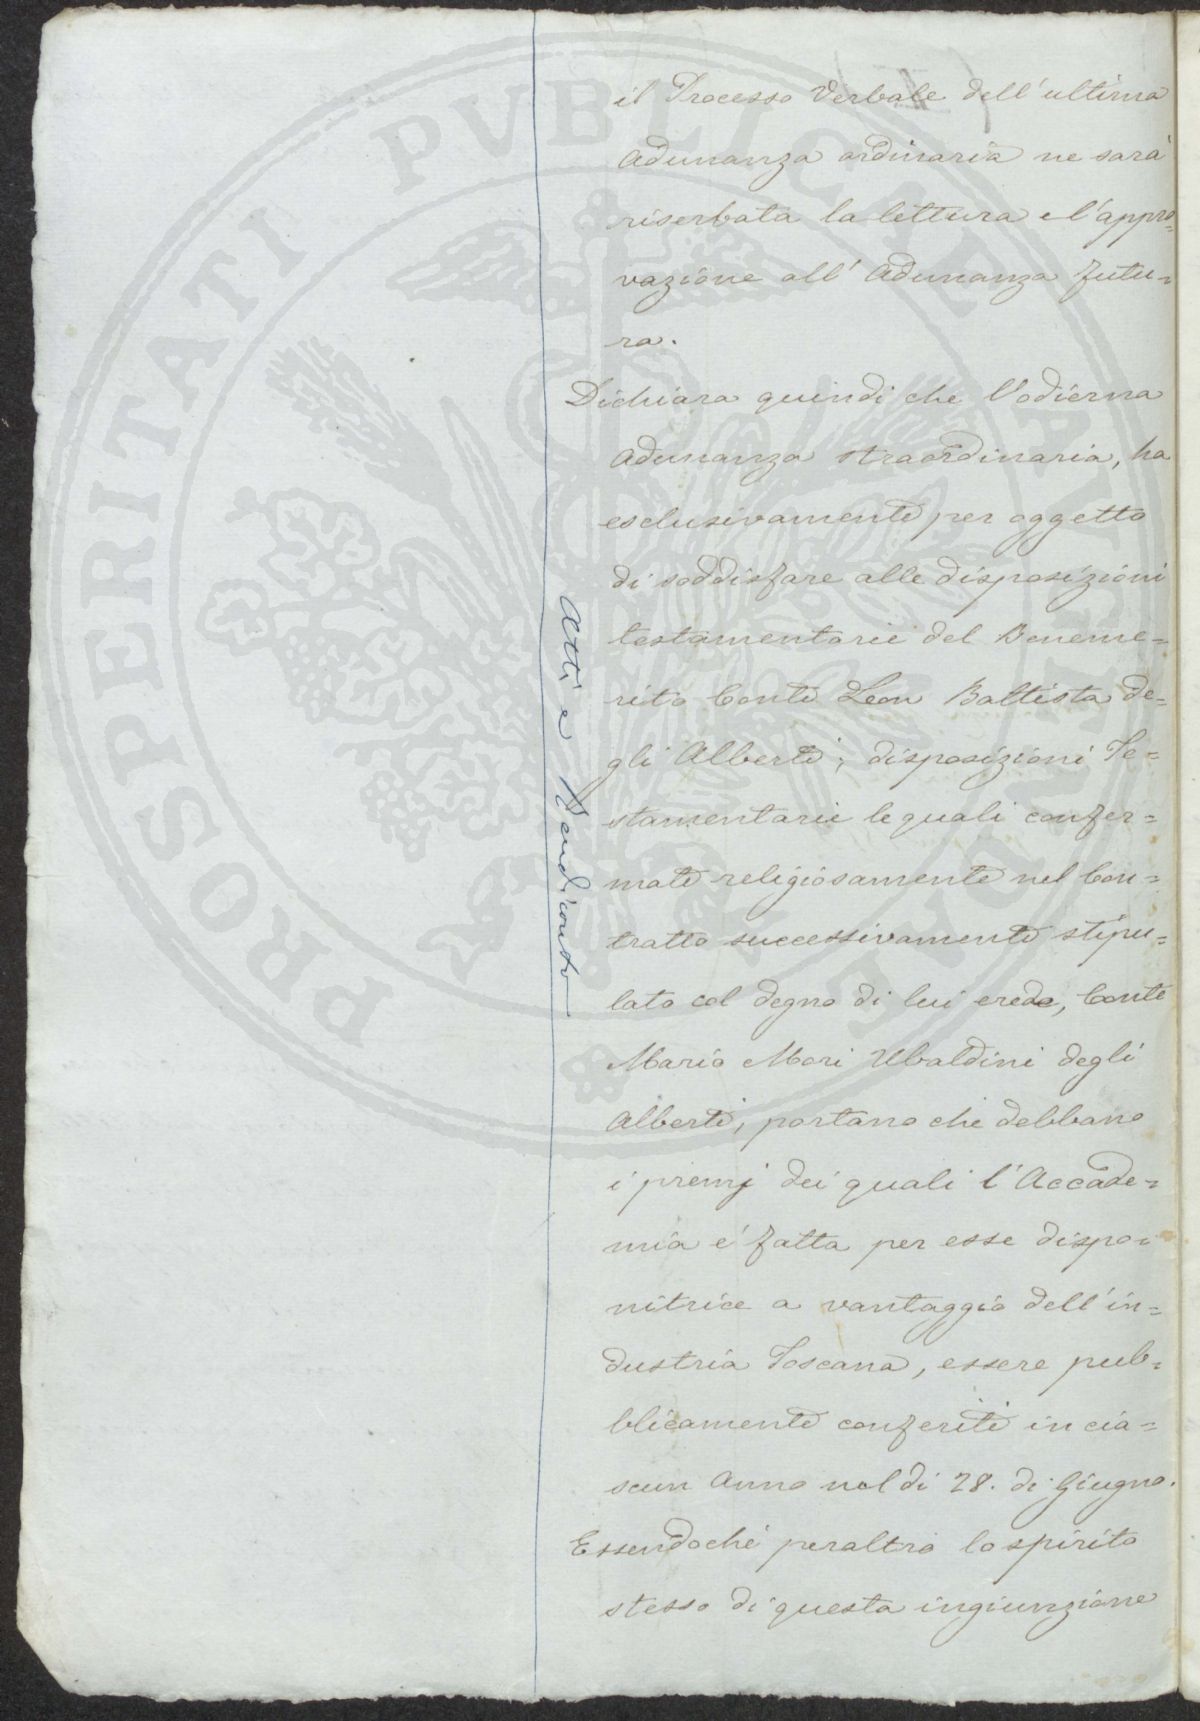 il Processo Verbale dell'ultima
Adunanza ordinaria ne sarà
riserbata la lettura e l'appro=
vazione all'Adunanza futu=
ra.
Dichiara quindi che l'odierna
Adunanza straordinaria, ha
esclusivamente per oggetto
di soddisfare alle disposizioni
testamentarie del Beneme=
rito Conte Leon Battista de=
gli Alberti; disposizioni Te=
stamentarie le quali confer=
mate religiosamente nel Con=
tratto successivamente stipu=
lato col degno di lui erede, Conte
Mario Mori Ubaldini degli
Alberti, portano che debbano
i premj dei quali l'Accade=
mia é fatta per esse dispo=
nitrice a vantaggio dell'in=
dustria Toscana, essere pub=
blicamente conferiti in cia=
scun Anno nel di 28. di Giugno.
Essendoché peraltro lo spirito
stesso di questa ingiunzione
Atti e Rendiconto
PROSPERITATI PVBLICAE AVGENDAE